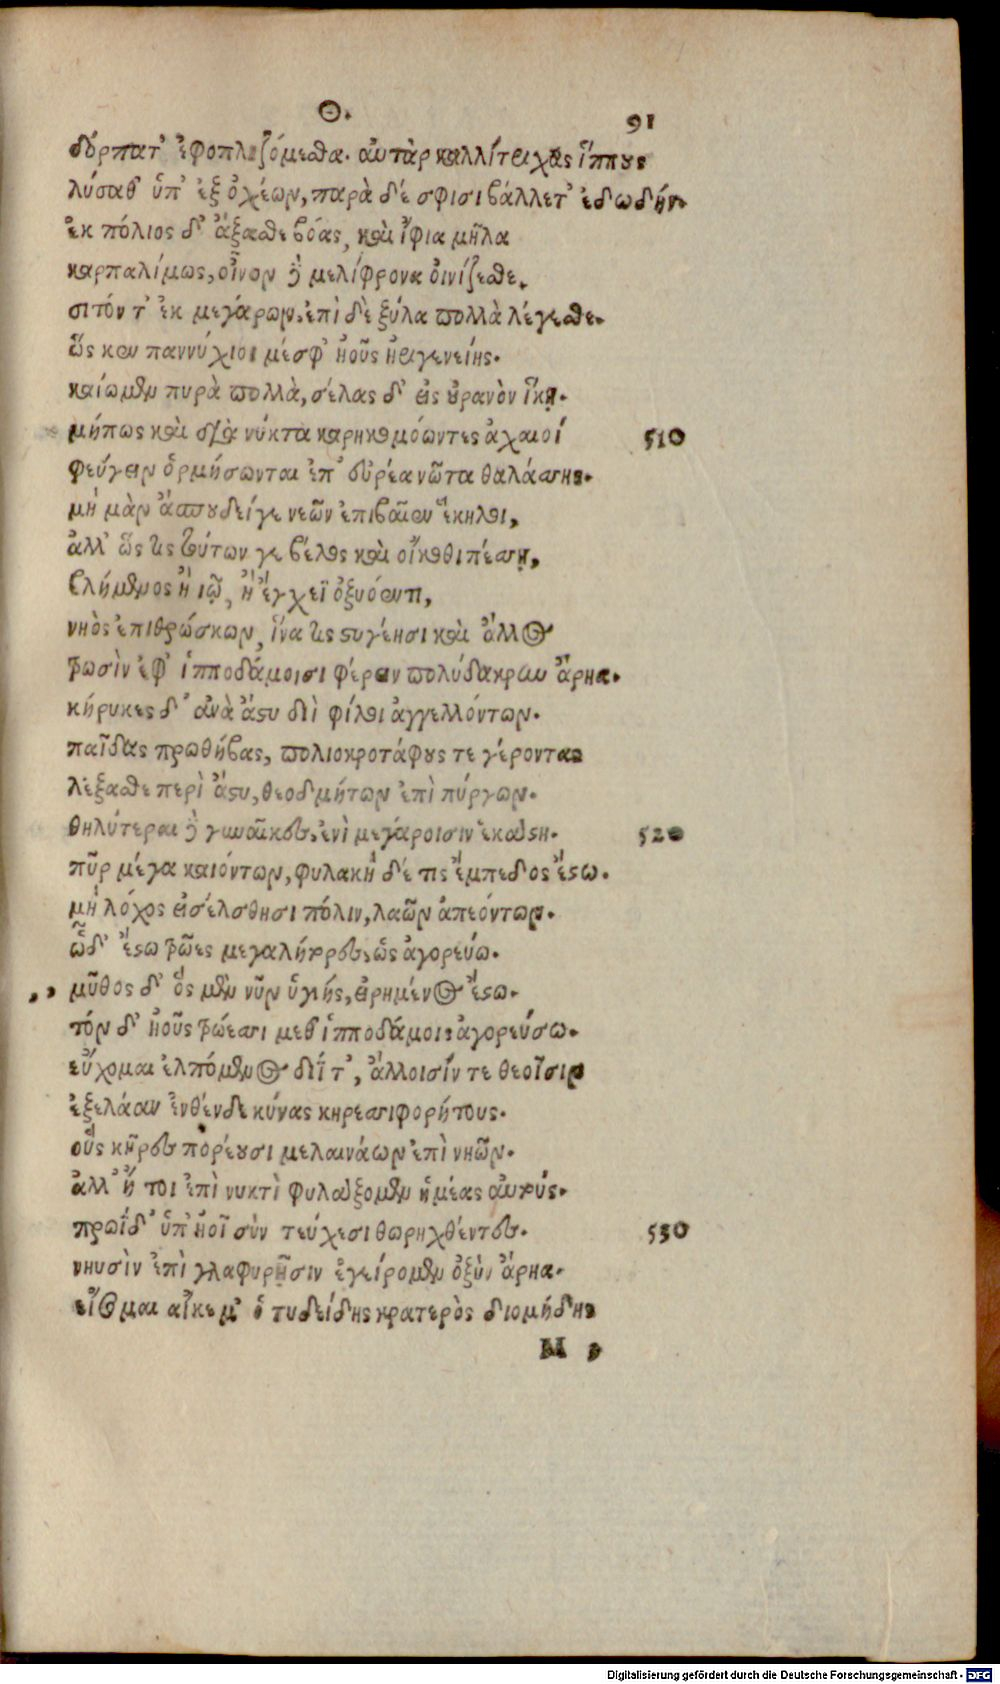 Θ.
91
δόρπατ' ἐφοπλιζόμεσθα. αὐτὰρ καλλίτριχας ἵππους
λύσαθ' ὑπ' ἐξ ὀχέων, παρὰ δέ σφισι βάλλετ' ἐδωδήν.
ἐκ πόλιος δ' ἄξασθε βόας, καὶ ἴφια μῆλα
καρπαλίμως, οἶνον δὲ μελίφρονα οἰνίζεσθε,
σιτόν τ' ἐκ μεγάρων. ἐπὶ δὲ ξύλα πολλὰ λέγεσθε.
ὥς κεν παννύχιοι μέσφ' ἠοῦς ἠριγενείης.
καίωμεν πυρὰ πολλὰ, σέλας δ' εἰς οὐρανὸν ἵκῃ.
μήπως καὶ διὰ νύκτα καρηκομόωντες ἀχαιοί
510
φεύγειν ὁρμήσωνται ἐπ' εὐρέα νῶτα θαλάσσης.
μὴ μὰν ἀσπουδείγε νεῶν ἐπιβαῖεν ἕκηλοι,
ἀλλ' ὥς τις τούτων γε βέλος καὶ οἴκοθι πέσσῃ,
βλήμενος ἢ ἰῷ, ἢ ἔγχεϊ ὀξυόεντι,
νηὸς ἐπιθρώσκων, ἵνα τις στυγέησι καὶ ἄλλος
τρωσὶν ἐφ' ἱπποδάμοισι φέρειν πολύδακρυν ἄρηα.
κήρυκες δ' ἀνὰ ἄστυ διῒ φίλοι ἀγγελλόντων.
παῖδας πρωθήβας, πολιοκροτάφους τε γέροντας
λέξασθε περὶ ἄστυ, θεοδμήτων ἐπὶ πύργων.
θηλύτεραι δὲ γυναῖκες ἐνὶ μεγάροισιν ἑκάστη.
520
πῦρ μέγα καιόντων, φυλακὴ δέ τις ἔμπεδος ἔστω.
μὴ λόχος εἰσέλσθησι πόλιν, λαῶν ἀπεόντων.
ὧδ' ἔστω τρῶες μεγαλήτορες, ὡς ἀγορεύω.
,, μῦθος δ' ὃς μὲν νῦν ὑγιής, εἰρημένος ἔστω.
τόν δ' ἠοῦς τρώεσσι μεθ' ἱπποδάμοις ἀγορεύσω.
εὔχομαι ἐλπόμενος διΐ τ', ἄλλοισίν τε θεοῖσιν
ἐξελάαν ἐνθένδε κύνας κηρεσσιφορήτους.
οὓς κῆρες πορέουσι μελαινάων ἐπὶ νηῶν.
ἀλλ' ἤ τοι ἐπὶ νυκτὶ φυλάξομεν ἡμέας αὐτούς.
πρωῒ δ' ὑπ' ἠοῖ σὺν τεύχεσι θωρηχθέντες.
530
νηυσὶν ἐπὶ γλαφυρῇσιν ἐγείρομεν ὀξὺν ἄρηα.
εἴσομαι αἴκε μ' ὁ τυδείδης κρατερὸς διομήδης
M
Digitalisierung gefördert durch die Deutsche Forschungsgemeinschaft - DFG